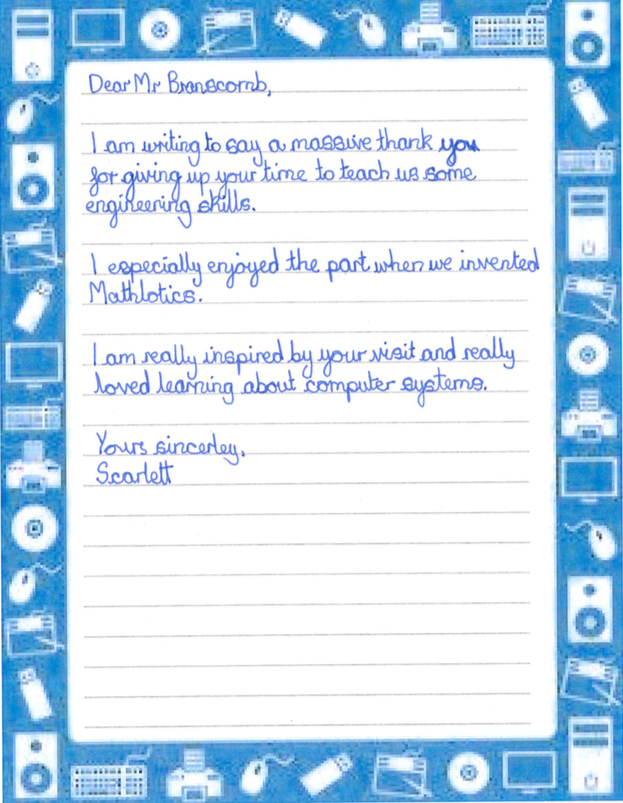 Dear Mr Branscomb,
I am writing to say a massive thank you
for giving up your time to teach us some
engineering skills.
I especially enjoyed the part when we invented
Mathlotics.
I am really inspired by your visit and really
loved learning about computer systems.
Yours sincerley,
Scarlett